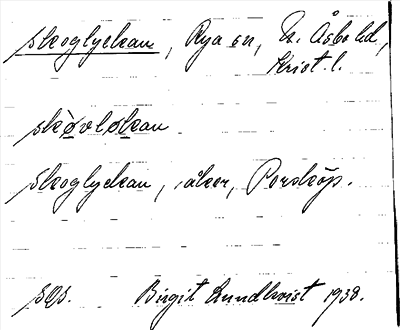 skoglyckan, Rya sn, N. Åsbo hd,
Krist. l.
skòvløkan
Skoglyckan, åker, Porsköp.
sgs. Birgit Lundkvist 1938.